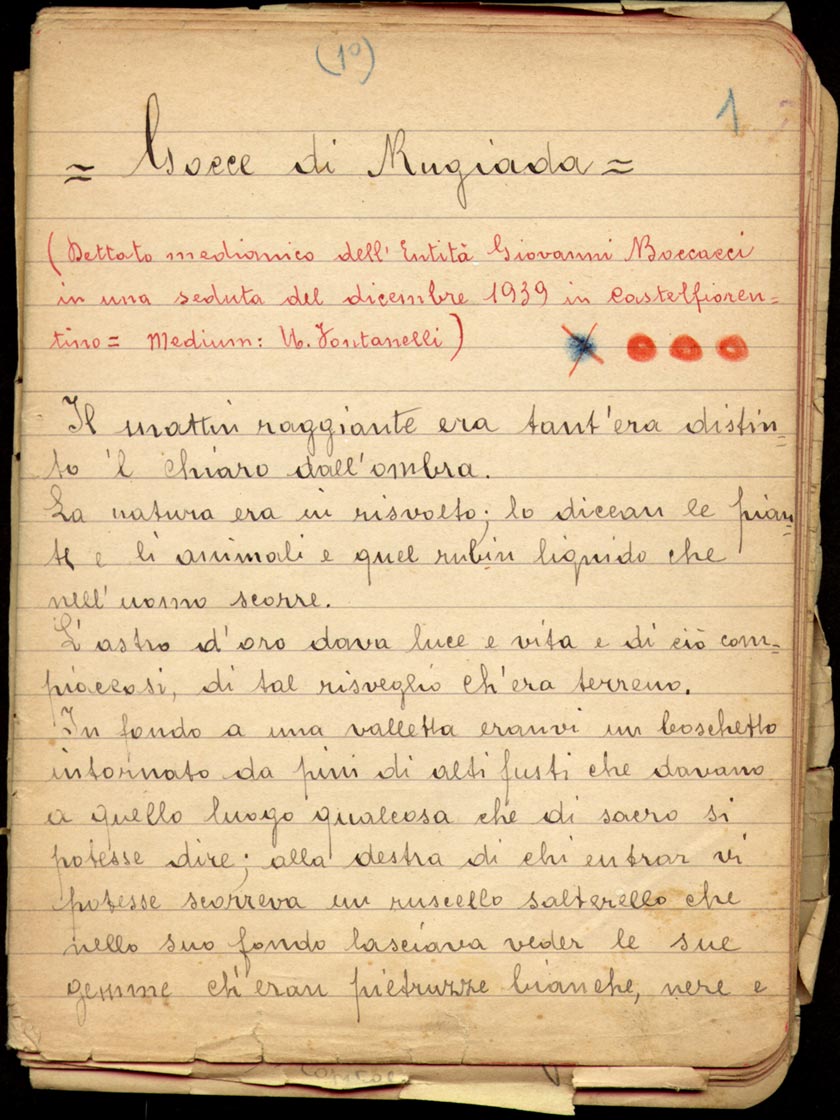 (1º)
1
= Gocce di Rugiada =
(Dettato medianico dell'Entità Giovanni Boccacci
in una seduta del dicembre 1939 in Castelfioren=
tino= Medium: U. Fontanelli)
Il mattin raggiante era tant'era distin=
to 'l chiaro dall'ombra.
La natura era in risvolto; lo dicean le pian=
te e li animali e quel rubin liquido che
nell'uomo scorre.
L'astro d'oro dava luce e vita e di ciò com=
piaceasi, di tal risveglio ch'era terreno.
In fondo a una valletta eranvi un boschetto
intornato da pini di alti fusti che davano
a quello luogo qualcosa che di sacro si
potesse dire; alla destra di chi entrar vi
potesse scorreva un ruscello salterello che
nello suo fondo lasciava veder le sue
gemme ch'eran pietruzze bianche, nere e